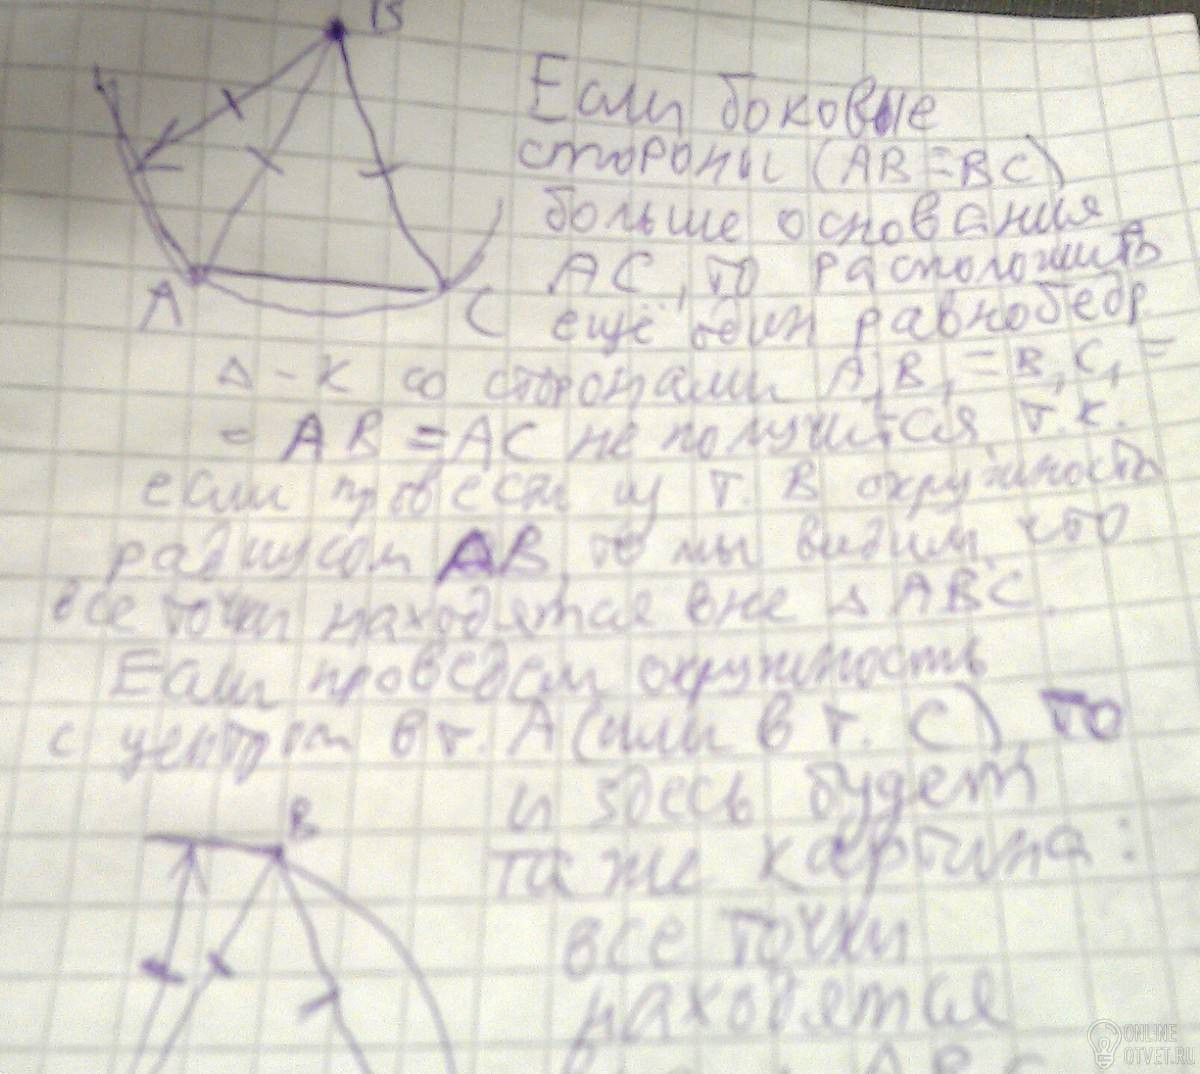 B
Если боковые
стороны (AB=BC)
больше основания
A
C
AC, то расположить
ещё один равнобедр.
Δ-к со сторонами A₁B₁=B₁C₁=
= AB=AC не получится, т.к.
если провести из т. B окружность
радиусом AB, то мы видим, что
все точки находятся вне Δ ABC.
Если проведём окружность
с центром в т. A (или в т. C), то
и здесь будет
B
та же картина:
все точки
находятся
ABC
ONLINE
OTVET.RU